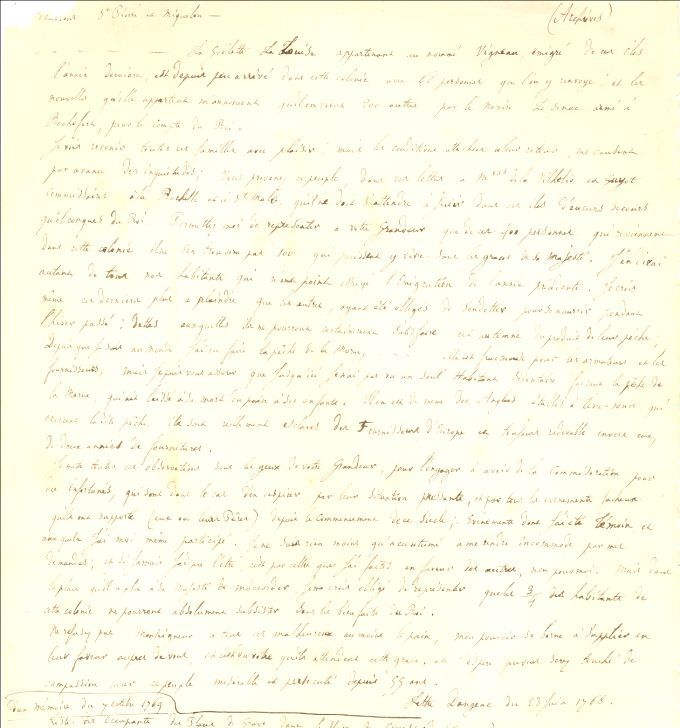 St Pierre et Miquelon — (Archives)
La Goëlette La Louise appartenant au nommé Vigneau, émigré de ces iles
l'année derniere, est depuis peu arrivé dans cette colonie avec 66 personnes que l'on y renvoye : et les
nouvelles qu'elle apportent m'annoncent qu'il en vient 200 autres par le Navire Le Senac armé à
Rochefort, pour le compte du Roi.
Je vois revenir toutes ces familles avec plaisir ; mais les conditions attachées a leur retour me causent
par avance des inquietudes ; Vous prevenez, ce peuple, dans vos lettres a Mrs de la
Commissaires a la Rochelle et a St Malo, qu'il ne doit s'attendre à jouir dans ces iles d'aucuns secours
quelconques du Roi. Permettez moi de representer a votre Grandeur que de ces 400 personnes qui reviennent
dans cette colonie il ne s'en trouvera pas 100 qui puissent y vivre sans les graces de sa Majesté. J'en dirai
autant de tous nos habitants qui n'ont point l'Emigration de l'année precedente. Je crois
même ces derniers plus a plaindre que les autres, ayant été obligés de s'endetter pour se nourrir pendant
l'hiver passé ; dettes auxquelles ils ne pourront certainement satisfaire cet automne du produit de leur pêche ;
Depuis que je suis au monde j'ai vu faire la pêche de la Morue, elle est pour les armateurs et les
fournisseurs, mais je puis vous assurer que jusqu'ici je n'ai pas vu un seul Habitant Sédentaire faisant la pêche de
la Morue, qui ait laissé à sa mort du pain à ses enfants. Il en est de meme des Anglais établis à terre-neuve qui
exercent ladite pêche, ils sont reellement esclaves des Fournisseurs d'Europe et toujours redevable envers eux,
de deux années de fournitures.
toutes ces observations sous les yeux de votre Grandeur, pour l'engager à avoir de la Commiseration pour
ces infortunés, qui sont dans le cas d'en esperer par leur situation presente, et par tous les evenements facheux
qu'ils ont supporté (eux ou leurs Peres) depuis le commencement de ce Siecle ; Evenements dont j'ai été temoin et
auxquels j'ai moi même participé. Je ne suis rien moins qu'accoutumé a me rendre incommode par mes
demandes ; et si jamais j'ai pu l'être, c'est par celles que j'ai faites en faveur des autres, non pour moi. Mais dans
la place qu'il a plu a Sa Majesté de m'accorder je me crois obligé de representer que les 3/4 des habitants de
cette colonie ne pourront absolument subsister sans les bienfaits du Roi.
Ne refusez pas Monseigneur a tous ces malheureux au moins le pain, mon pouvoir se borne à supplier en
leur faveur auprès de vous, et c'est de votre qu'ils attendent cette grace. et serez touché de
compassion pour ce peuple miserable et persecuté depuis 55 ans.
Lettre Dangeac du 23 Juin 1768.
D'un mémoire du 7 octbre 1769